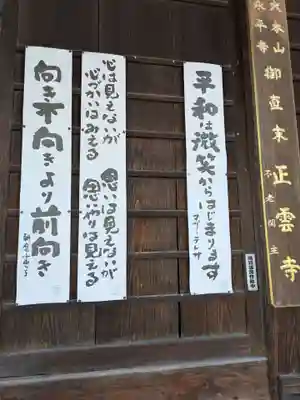 大本山
永平寺
御直末 正雲寺
不老閣主
平和は微笑からはじまります
マザー・テレサ
心は見えないが
心づかいはみえる
思いは見えないが
思いやりは見える
向き不向きより前向き